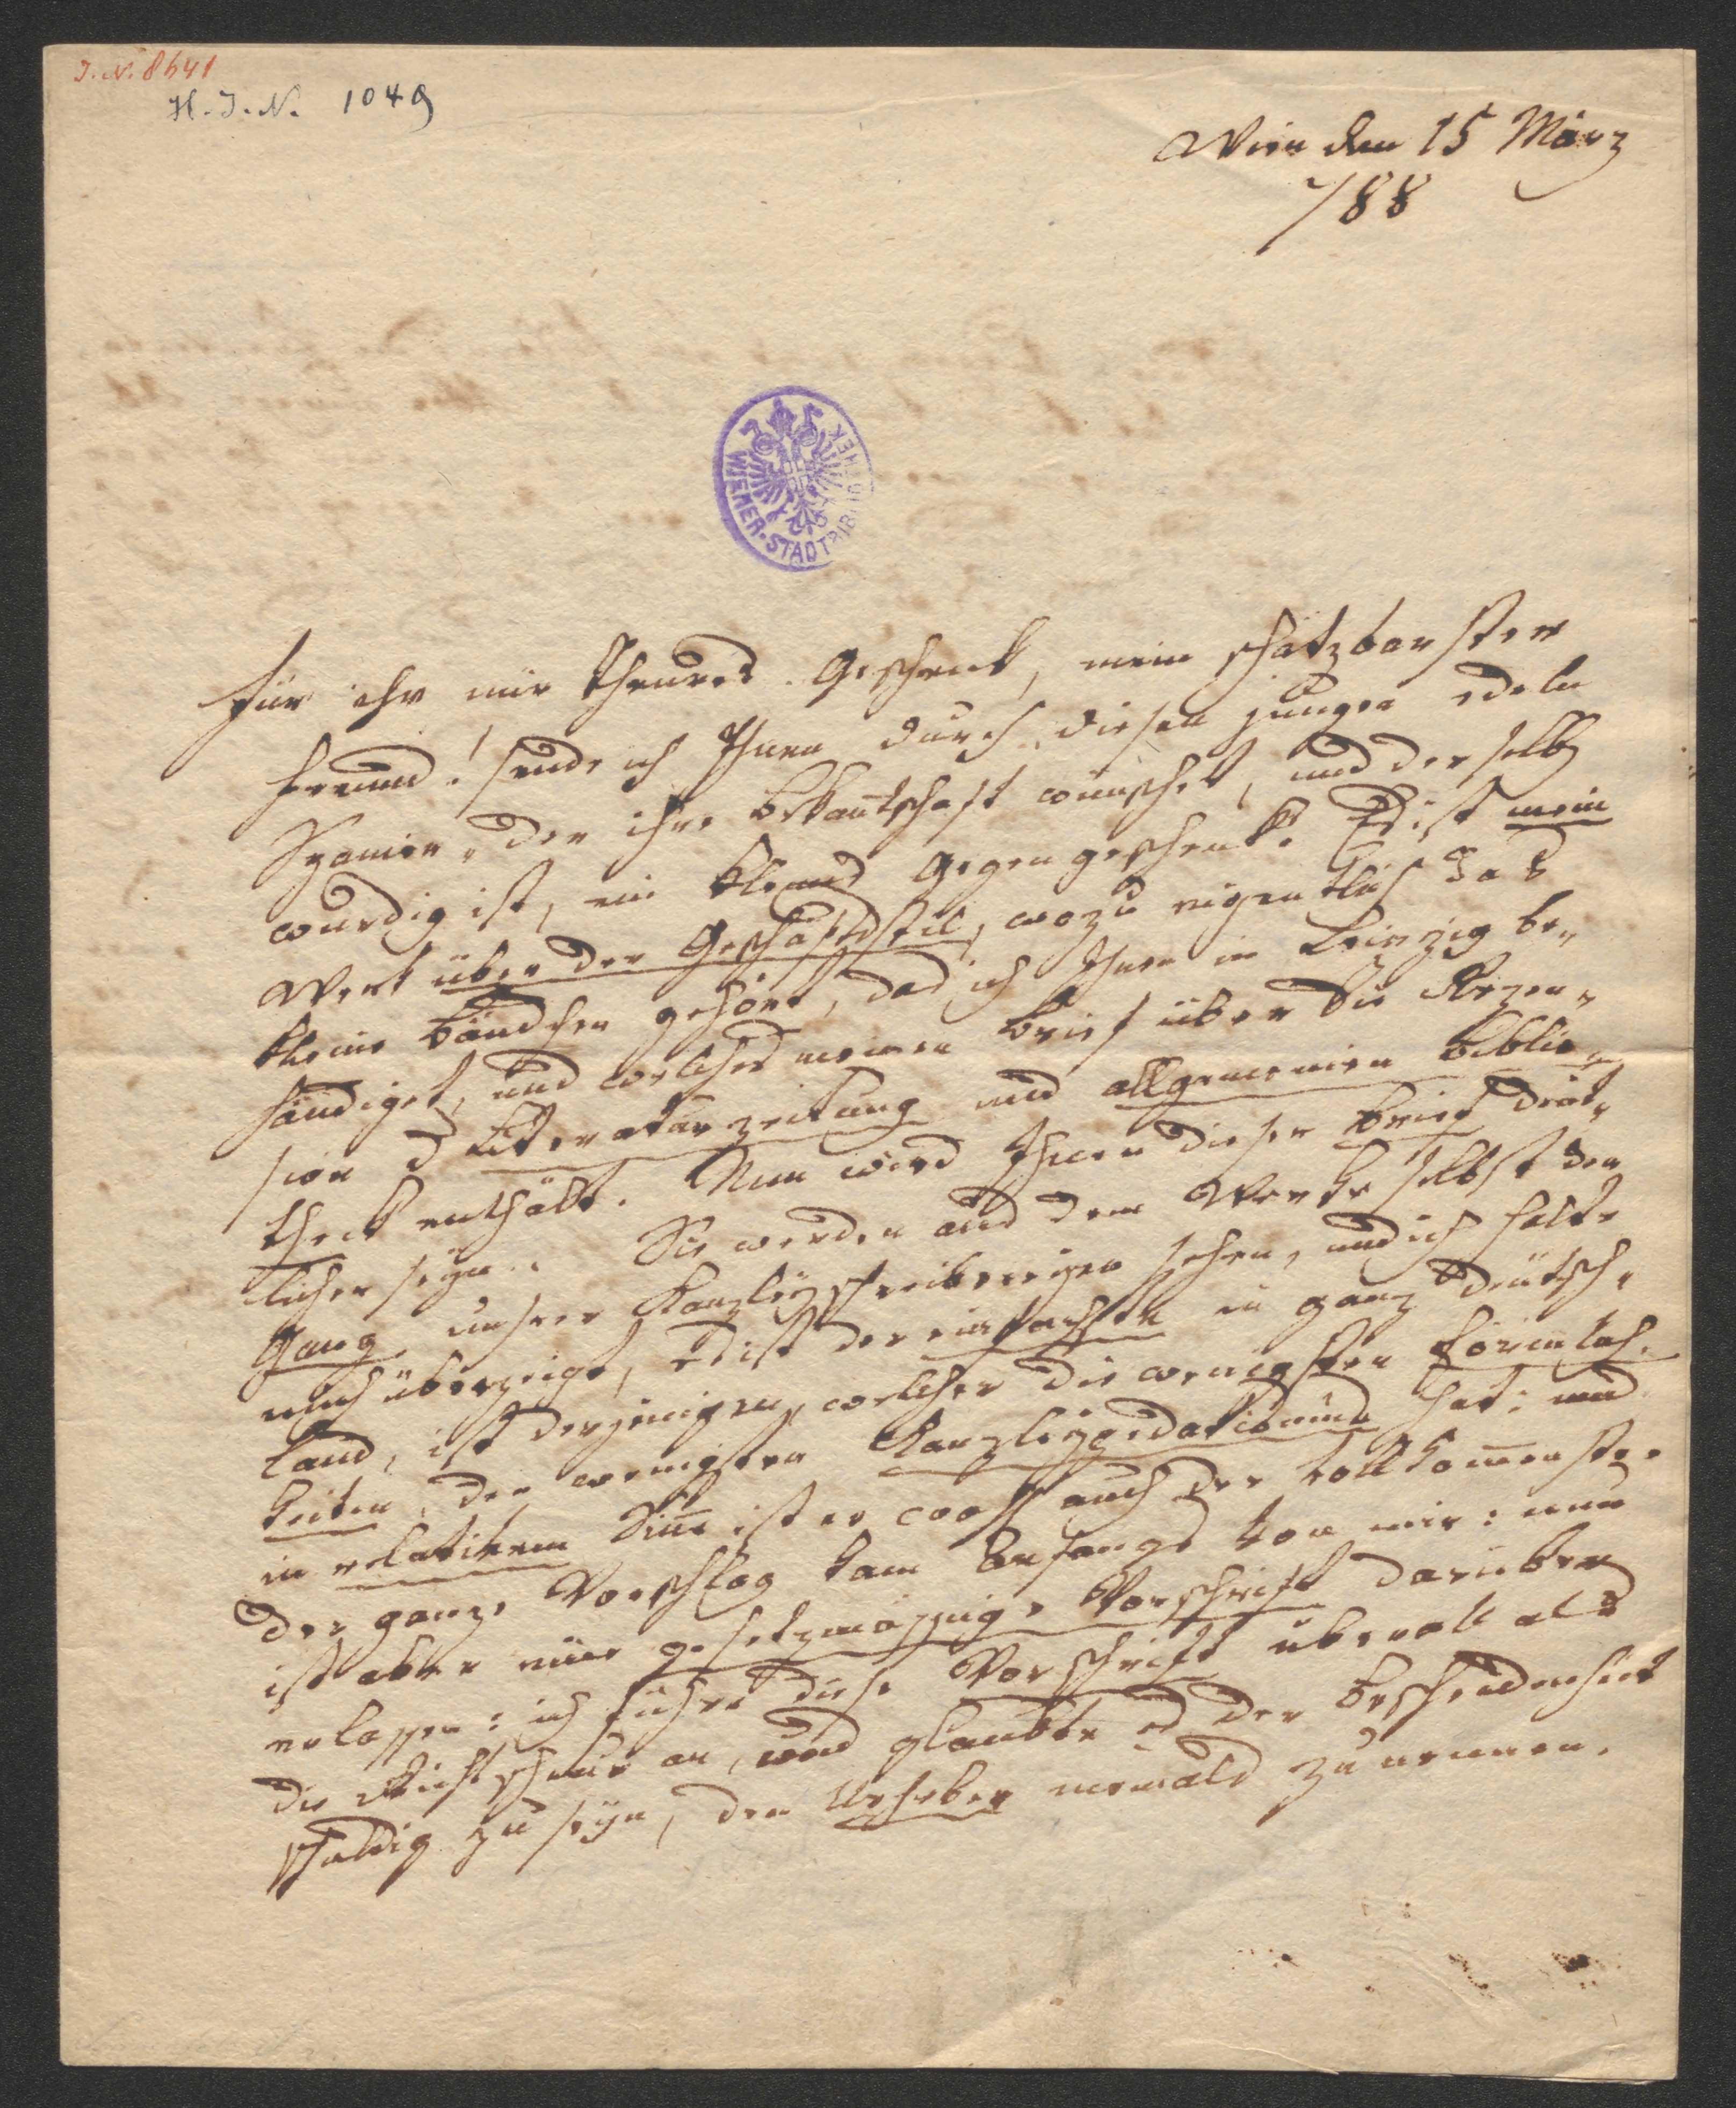 I.N. 8641
H.I.N. 1049
Wien den 15 März
788
WIENER STADTBIBLIOTHEK
Für ihr mir theures Geschenk, mein schätzbarster
Freund! sende ich Ihnen durch diesen jungen edeln
Spanier, der ihre Bekantschaft wünschet, und derselben
würdig ist, ein kleines Gegengeschenk. Es ist mein
Werk über den Geschäftsstil, wozu eigentlich das
kleine Bändchen gehört, das ich Ihnen in Leipzig be-
händiget, und welches meinen Brief über die Rezen-
sion d Litteraturzeitung und allgemeinen Biblio-
theck enthält. Nun wird Ihnen dieser Brief deut-
licher seyn. Sie werden aus dem Werke selbst den
Gang unsrer Kanzleyschreibereyen sehen, und ich halte
mich überzeigt, es ist der einfachste in ganz Deutsch-
land, ist derjenige, welcher die wenigsten Förmlich-
keiten, den wenigsten Kanzleypedatismus hat: und
in relativem Sinne ist er wohl auch der vollkommenste.
Der ganze Vorschlag kam Anfangs von mir: nun
ist aber eine gesetzmässige Vorschrift darüber
erlassen: ich führe diese Vorschrift überall als
die Richtschnur an, und glaubte es der Bescheidenheit
schuldig zu seyn, den Urheber niemals zu nennen.